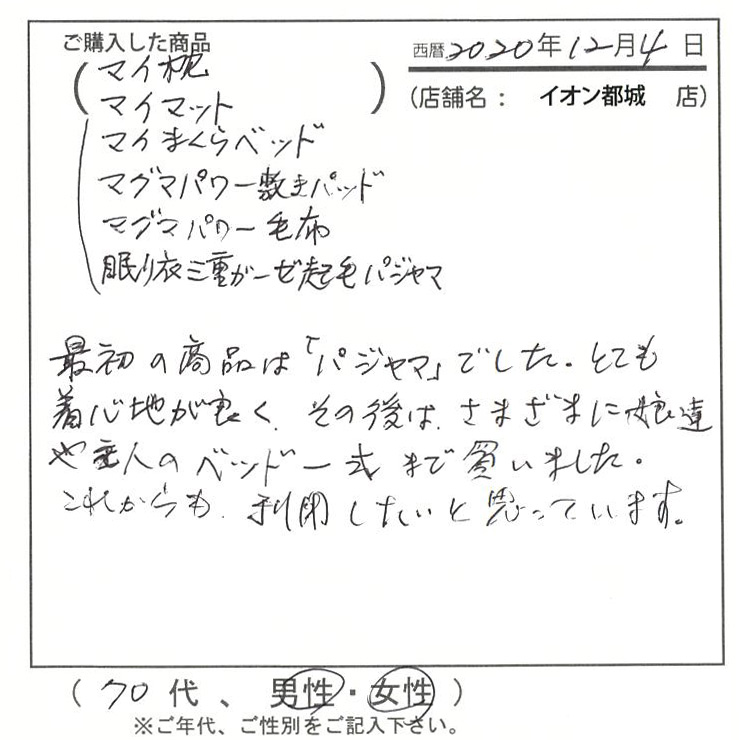 ご購入した商品
西暦2020年12月4日
(マイ枕)
(店舗名： イオン都城 店)
マイマット
マイまくらベッド
マグマパワー敷きパッド
マグマパワー毛布
眠り衣三重ガーゼ起毛パジャマ
最初の商品は「パジャマ」でした。とても
着心地が良く、その後は、さまざまに娘達
や主人のベッド一式まで買いました。
これからも、利用したいと思っています。
(70代、男性・女性)
※ご年代、ご性別をご記入下さい。